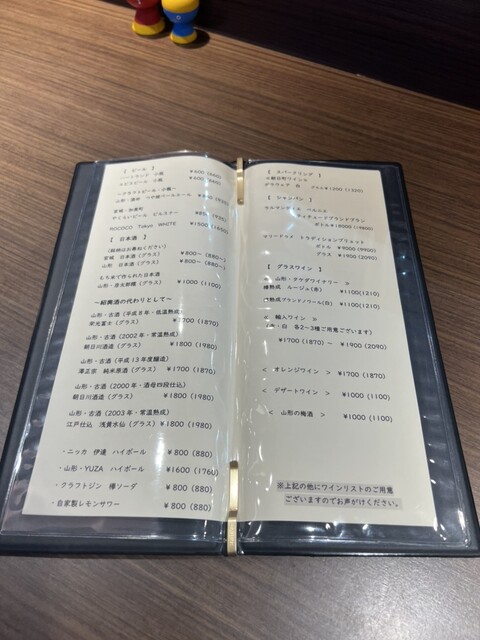 【 ビール 】
ハートランド 小瓶
エビスビール 小瓶
～クラフトビール・小瓶～
宮城・加美町
やくらいビール ピルスナー
ROCOCO Tokyo WHITE ¥1500
【 日本酒 】
宮城 日本酒（グラス） ¥800～（880～）
山形 日本酒（グラス） ¥800～（880～）
もち米で作られた日本酒
¥1000（1100）
～紹興酒の代わりとして～
山形・古酒（平成８年・低温熟成）
栄光冨士（グラス） ¥1700（1870）
山形・古酒（2002年・常温熟成）
朝日川酒造（グラス） ¥1800（1980）
山形・古酒（平成１３年度醸造）
澤正宗 純米原酒（グラス） ¥1700（1870）
山形・古酒（2000年・酒母四段仕込）
朝日川酒造（グラス） ¥1800（1980）
山形・古酒（2003年・常温熟成）
江戸仕込 浅黄水仙（グラス） ¥1800（1980）
・ニッカ 伊達 ハイボール ¥800（880）
・山形・YUZA ハイボール ¥1600（1760）
・クラフトジン 欅ソーダ ¥800（880）
・自家製レモンサワー ¥800（880）
【 スパークリング 】
朝日町ワイン
デラウェア 白
【 シャンパン 】
ボトル¥18000（19800）
トラディションブリュット
ボトル ¥9000（9900）
グラス ¥1900（2090）
【 グラスワイン 】
＜ 山形・タケダワイナリー ＞
樽熟成 ルージュ(赤) ¥1100(1210)
樽熟成ブランドノワール(白) ¥1100(1210)
＜ 輸入ワイン ＞
赤・白 各2～3種ご用意ございます）
¥1700（1870）～ ¥1900（2090）
＜ オレンジワイン ＞ ¥1700（1870）
＜ デザートワイン ＞ ¥1000（1100）
＜ 山形の梅酒 ＞ ¥1000（1100）
※上記の他にワインリストのご用意
ございますのでお声がけください。